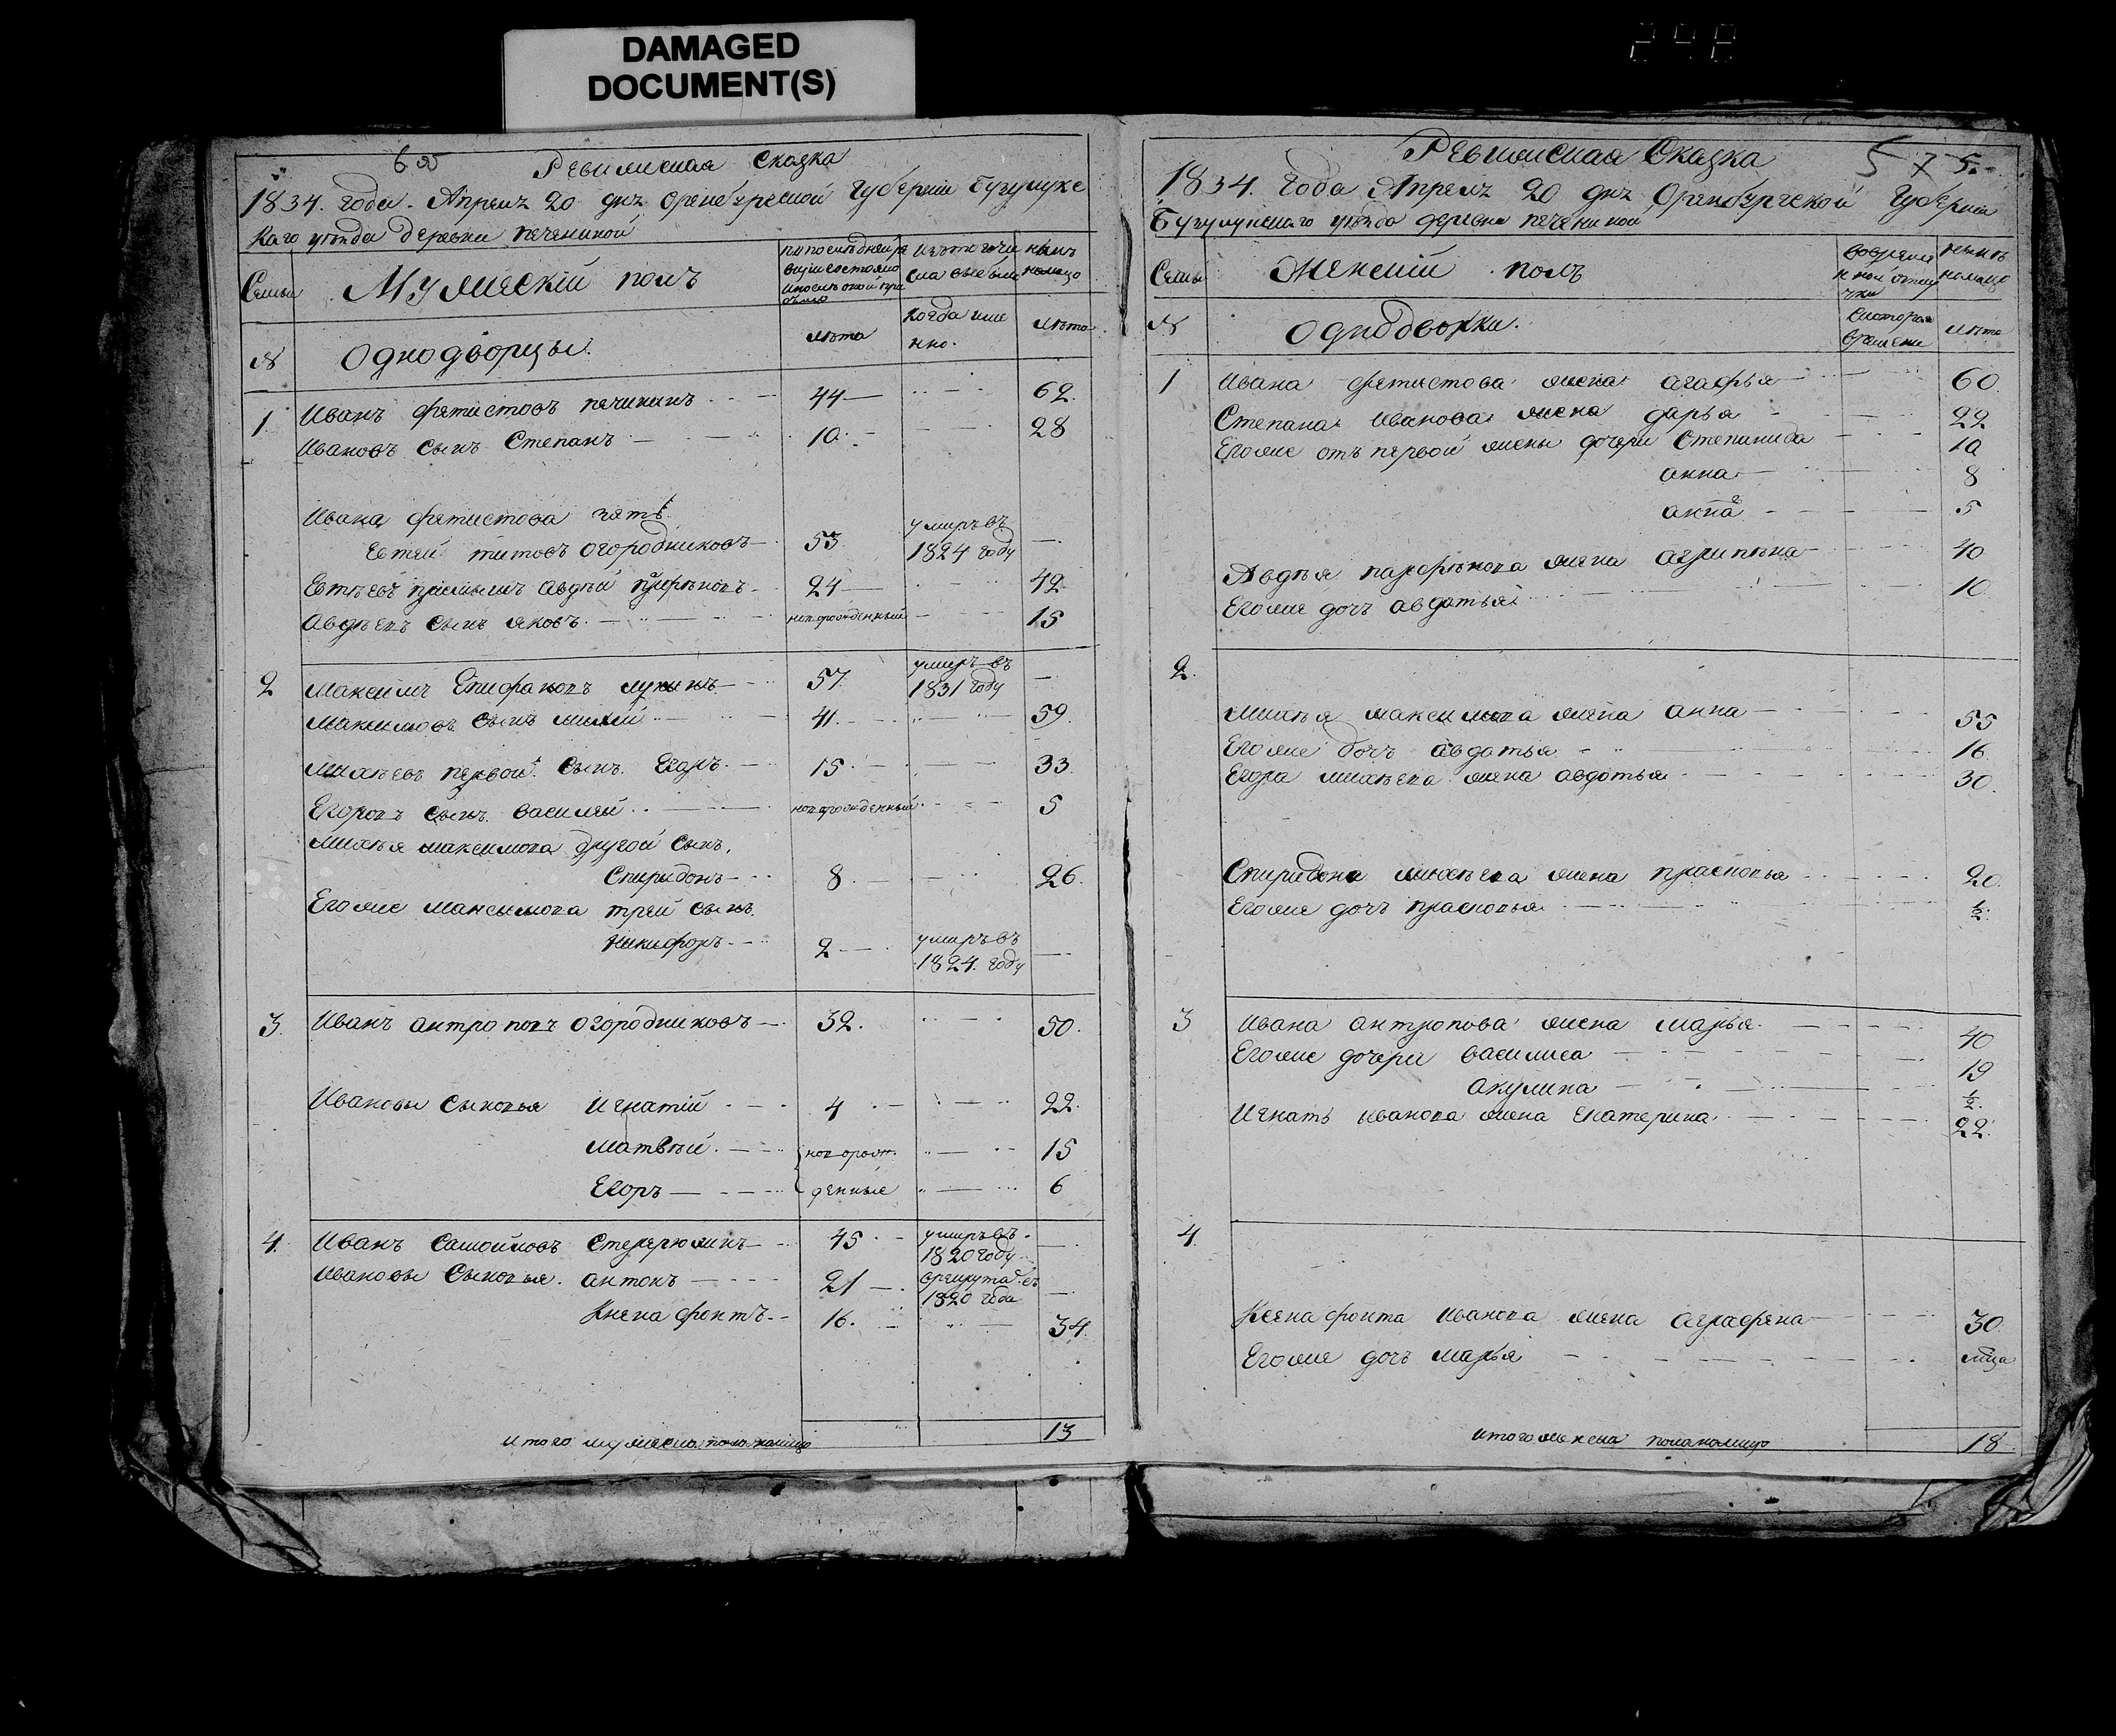 DAMAGED
DOCUMENT(S)
Ревижская сказка
1834. года. Апреля 20 дня Оренбургской Губерніи Бугуруслан
каго уѣзда деревни печениной
Семьи
Мужескій полъ
по последней ре
визіи состояло
и после оной при
было
изъ того чи
сла выбыло
нынѣ
налицо
№
Однодворцы.
лѣта
когда име
нно.
лѣта
1. Иванъ фетистовъ печининъ 44 62.
Ивановъ сынъ Степанъ 10. 28
Ивана фетистова зять
Евтей титовъ огородниковъ 53 умиръ въ 1824 году
Евтѣевъ приемышъ авдѣй 24 42
Авдѣевъ сынъ яковъ. новорожденный 15
2 Максимъ Епифановъ лунинъ 57. умиръ въ 1831 году
Максимовъ сынъ михей 41. 59.
Михѣевъ первой сынъ. Егоръ. 15. 33.
Егоровъ сынъ. василей новорожденный 5
Михѣя максимова другой сынъ.
Спиридонъ 8. 26.
Егоже максимова трей сынъ.
Никифоръ 2 умиръ въ 1824. году
3. Иванъ антроповъ огородниковъ 32. 50.
Ивановы сыновья Игнатій 4 22.
Матвѣй. новорож 15
Егоръ денные 6
4. Иванъ самойловъ 45 умиръ въ 1820 году
Ивановы сыновья. антонъ 21 врекрута въ 1820 года
Ксенафонтъ 16. 34.
итого мужеска пола налицо 13
Ревижская Сказка 575.
1834. года Апреля 20 дня Оренбургской Губерніи
Бугурусланскаго уѣзда деревни печениной
Семьи
Женскій полъ
во времен
ной отлу
чки
нынѣ
налицо
№
Однодворки.
с котораго
времени
лѣта
1 Ивана фетистова жена агафья 60
Степана Иванова жена дарья 22
Егоже отъ первой жены дочери Степанида 10
анна 8
анна 2 5
Авдѣя жена агрипѣна 40
Егоже дочь авдотья 10
2.
Михѣя максимова жена анна 55
Егоже дочь авдотья 16
Егора михѣева жена авдотья 30.
Спиридона михѣева жена прасковья 20.
Егоже дочь прасковья ½.
3 Ивана антропова жена марья. 40
Егоже дочери василиса 19
акулина ½.
Игнать иванова жена екатерина 22.
4.
Ксенафонта иванова жена аграфена 30.
Егоже дочь марья
итого женска пола налицо 18